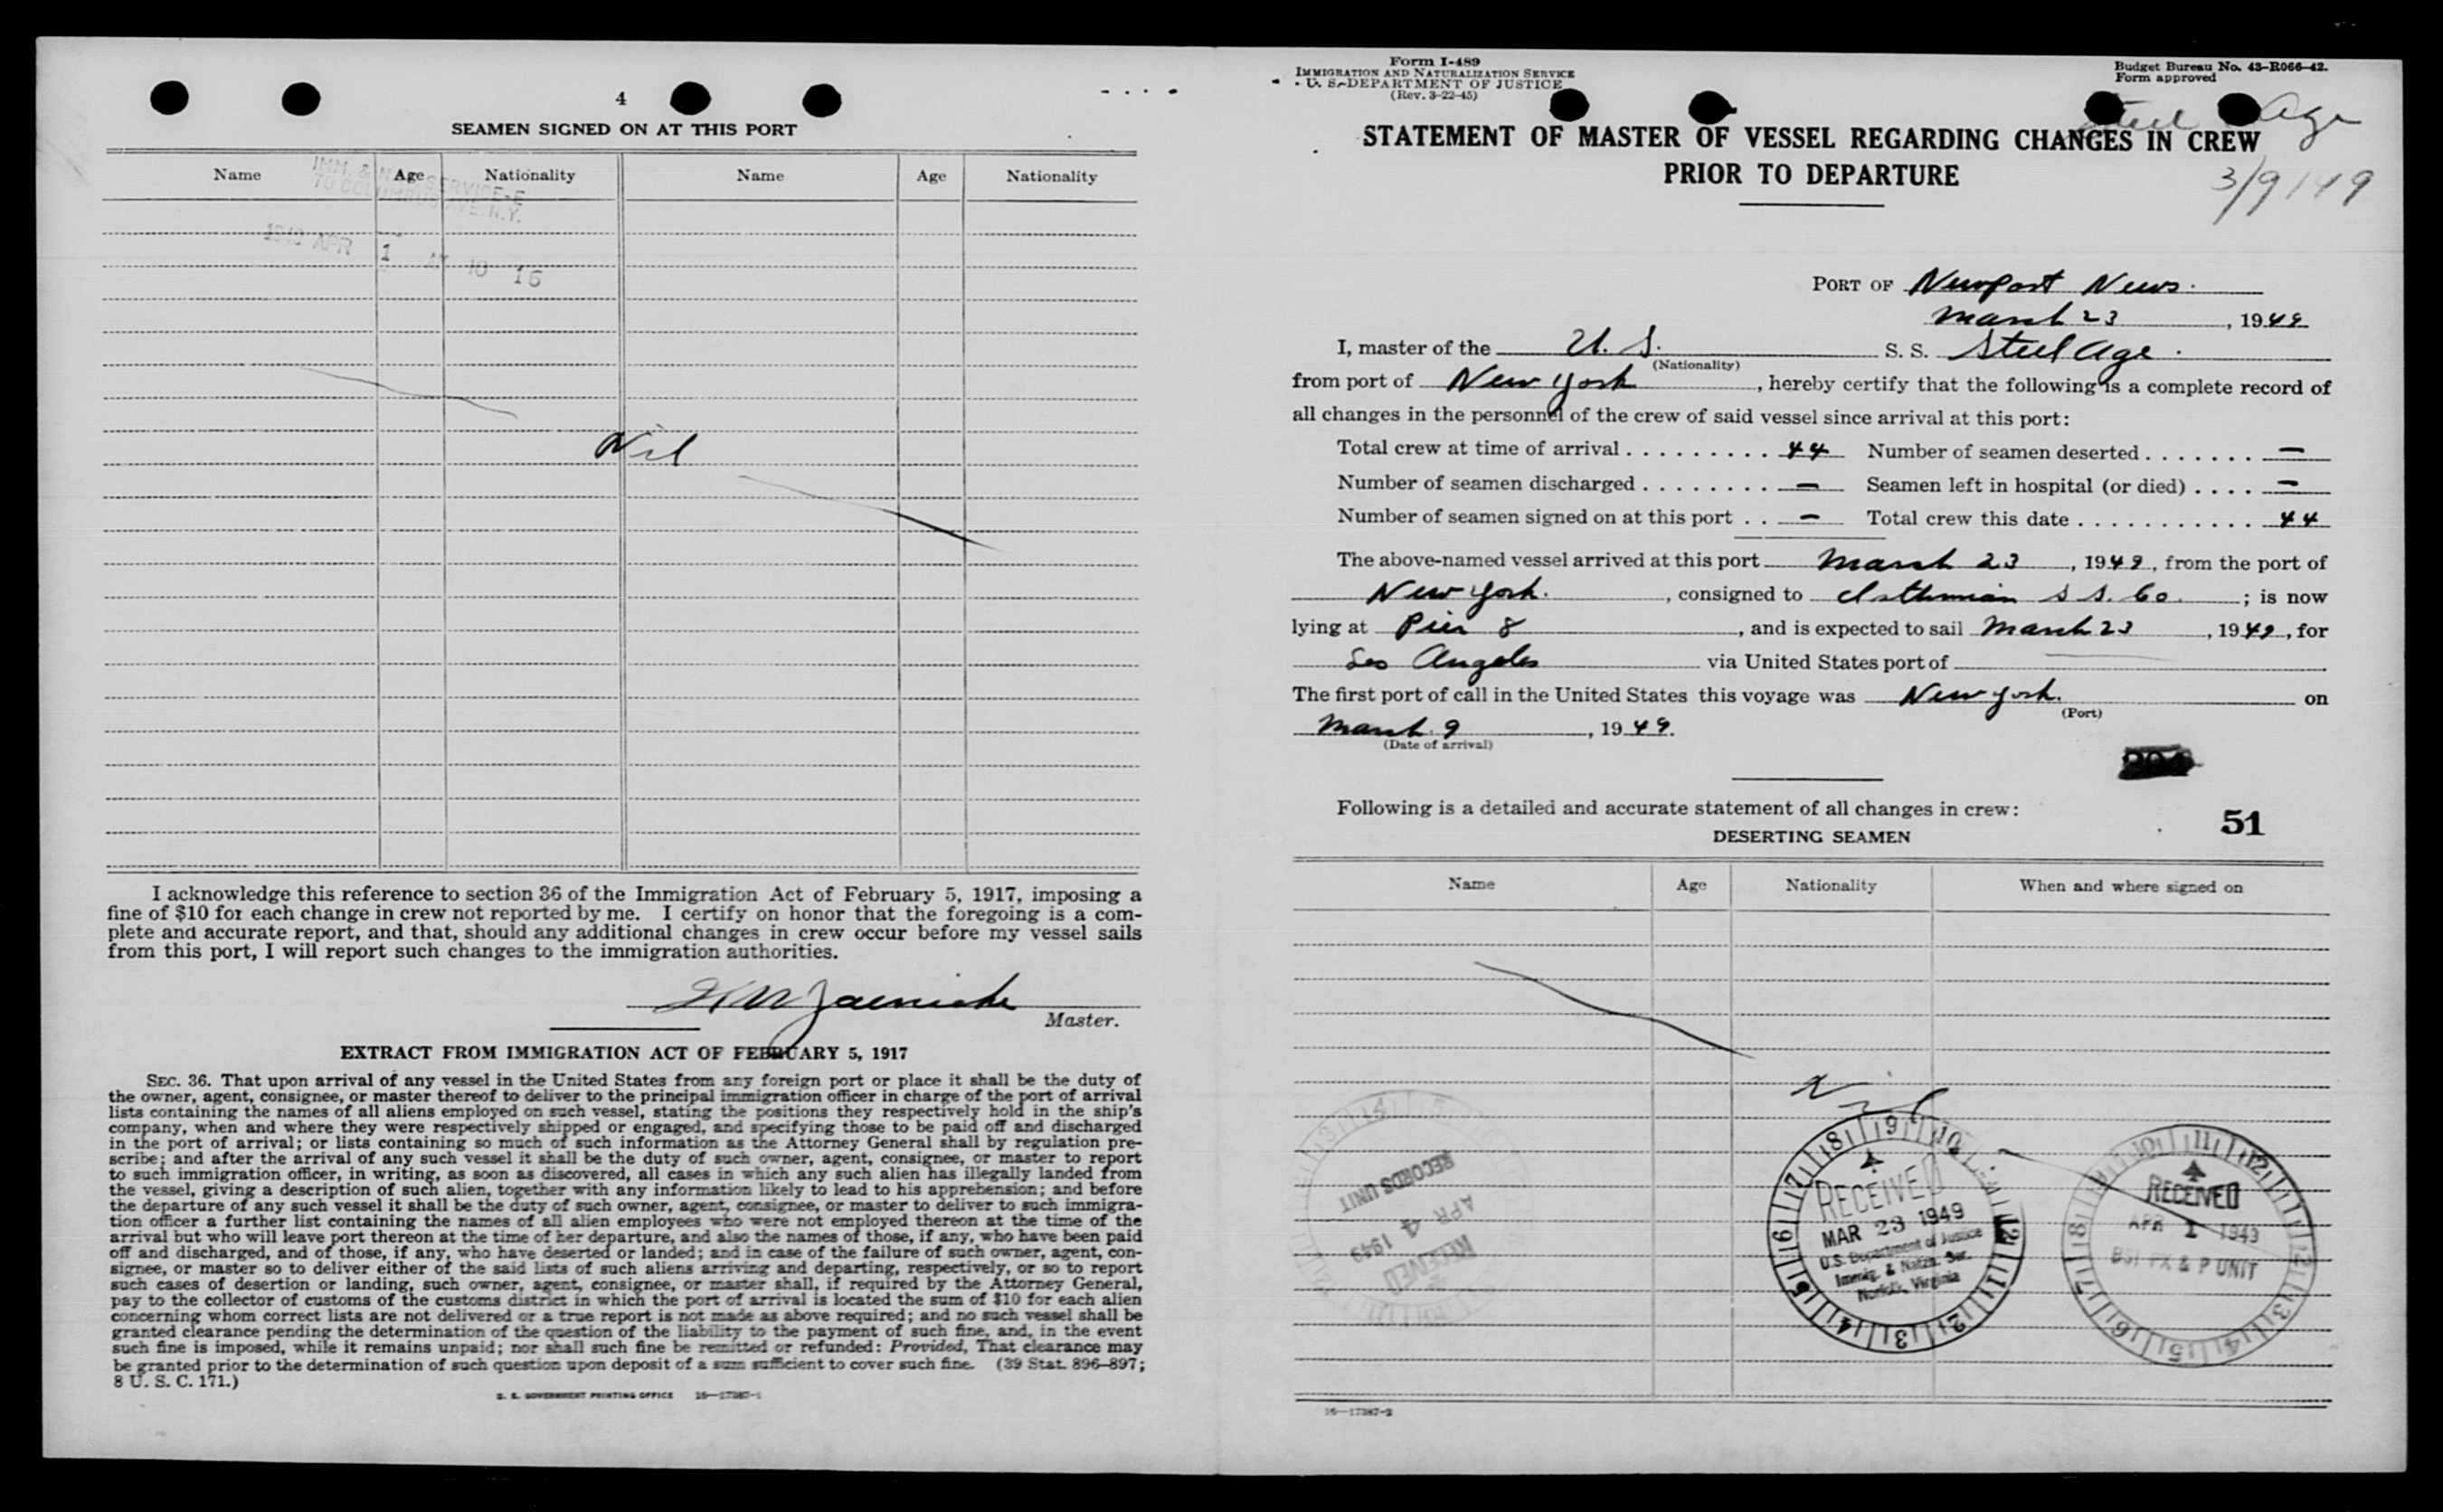 4
SEAMEN SIGNED ON AT THIS PORT
Name Age Nationality Name Age Nationality
IMM. & N. SERVICE-E
70 COLUMBUS AVE. N.Y.
APR 1 10 16
Nil
I acknowledge this reference to section 36 of the Immigration Act of February 5, 1917, imposing a
fine of $10 for each change in crew not reported by me. I certify on honor that the foregoing is a com-
plete and accurate report, and that, should any additional changes in crew occur before my vessel sails
from this port, I will report such changes to the immigration authorities.
Master.
EXTRACT FROM IMMIGRATION ACT OF FEBRUARY 5, 1917
SEC. 36. That upon arrival of any vessel in the United States from any foreign port or place it shall be the duty of
the owner, agent, consignee, or master thereof to deliver to the principal immigration officer in charge of the port of arrival
lists containing the names of all aliens employed on such vessel, stating the positions they respectively hold in the ship's
company, when and where they were respectively shipped or engaged, and specifying those to be paid off and discharged
in the port of arrival; or lists containing so much of such information as the Attorney General shall by regulation pre-
scribe; and after the arrival of any such vessel it shall be the duty of such owner, agent, consignee, or master to report
to such immigration officer, in writing, as soon as discovered, all cases in which any such alien has illegally landed from
the vessel, giving a description of such alien, together with any information likely to lead to his apprehension; and before
the departure of any such vessel it shall be the duty of such owner, agent, consignee, or master to deliver to such immigra-
tion officer a further list containing the names of all alien employees who were not employed thereon at the time of the
arrival but who will leave port thereon at the time of her departure, and also the names of those, if any, who have been paid
off and discharged, and of those, if any, who have deserted or landed; and in case of the failure of such owner, agent, con-
signee, or master so to deliver either of the said lists of such aliens arriving and departing, respectively, or so to report
such cases of desertion or landing, such owner, agent, consignee, or master shall, if required by the Attorney General,
pay to the collector of customs of the customs district in which the port of arrival is located the sum of $10 for each alien
concerning whom correct lists are not delivered or a true report is not made as above required; and no such vessel shall be
granted clearance pending the determination of the question of the liability to the payment of such fine, and, in the event
such fine is imposed, while it remains unpaid; nor shall such fine be remitted or refunded: Provided, That clearance may
be granted prior to the determination of such question upon deposit of a sum sufficient to cover such fine. (39 Stat. 896-897;
8 U. S. C. 171.)
U. S. GOVERNMENT PRINTING OFFICE 16—17387-1
Form I-489
IMMIGRATION AND NATURALIZATION SERVICE
U. S. DEPARTMENT OF JUSTICE
(Rev. 3-22-45)
Budget Bureau No. 43-R066-42.
Form approved
Steel Age
3/9/49
STATEMENT OF MASTER OF VESSEL REGARDING CHANGES IN CREW
PRIOR TO DEPARTURE
PORT OF Newport News.
March 23, 1949
I, master of the U. S. S. S. Steel Age.
(Nationality)
from port of New York, hereby certify that the following is a complete record of
all changes in the personnel of the crew of said vessel since arrival at this port:
Total crew at time of arrival . . . . . . . . . . 44 Number of seamen deserted . . . . . . . —
Number of seamen discharged . . . . . . . . — Seamen left in hospital (or died) . . . . —
Number of seamen signed on at this port . . — Total crew this date . . . . . . . . . . . . 44
The above-named vessel arrived at this port March 23, 1949, from the port of
New York., consigned to Isthmian S S. Co.; is now
lying at Pier 8, and is expected to sail March 23, 1949, for
Los Angeles via United States port of —
The first port of call in the United States this voyage was New York. on
(Port)
March 9, 1949.
(Date of arrival)
Following is a detailed and accurate statement of all changes in crew:
51
DESERTING SEAMEN
Name Age Nationality When and where signed on
Nil
RECORDS UNIT
APR 4 1949
RECEIVED
RECEIVED
MAR 23 1949
U.S. Department of Justice
Immig. & Natzn. Ser.
Norfolk, Virginia
RECEIVED
APR 1 1943
BSI PX & P UNIT
16—17387-2